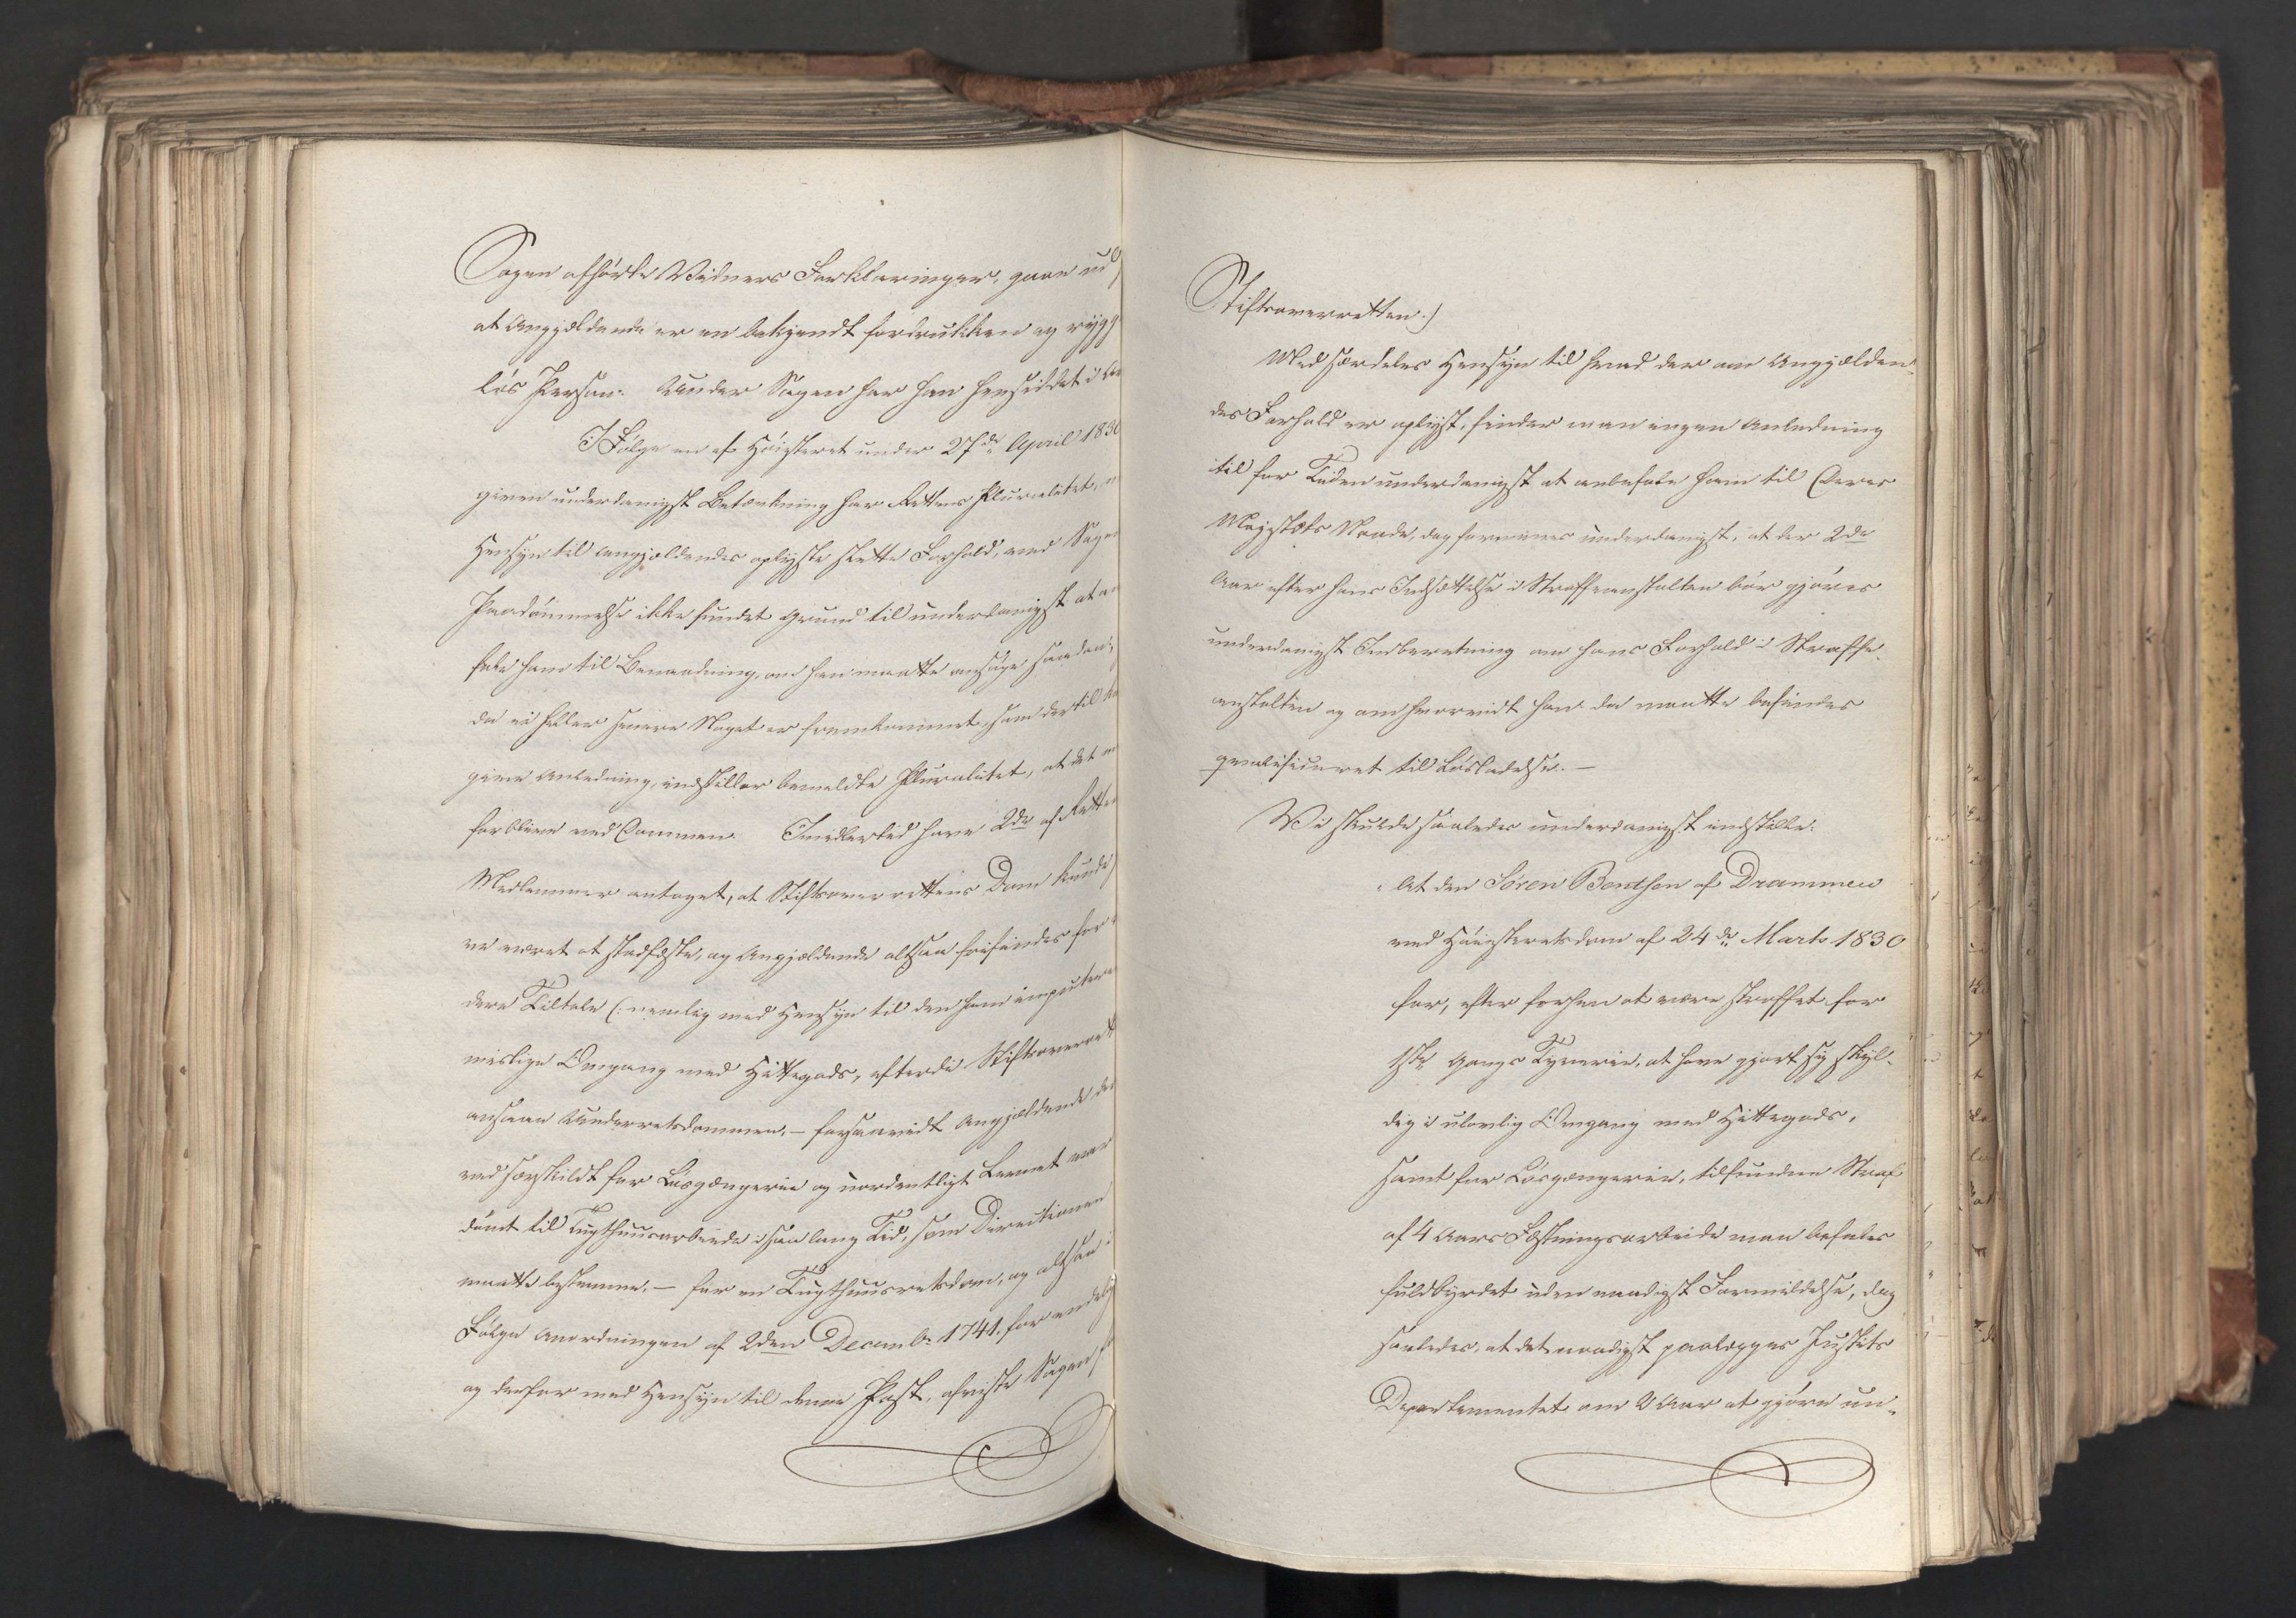 Sagen afhörte Vidners Forklaringer, gaae ud
at Angjældende er en bekjendt fordrukken og rygg
lös Person. Under Sagen har han hensiddet i
I Følge en af Höiesteret under 27de April 1830
given underdanigst Betænkning har Rettens Pluralitet,
Hensyn til Angjældendes oplyste slette Forhold, ved Sagens
Paadömmelse ikke fundet Grund til underdanigst at an
befale ham til Benaadning, om han maatte ansöge saadan,
da ei heller senere Noget er fremkommet, som dertil
giver Anledning, indstiller bemeldte Pluralitet, at det
forbliver ved Dommen. Imidlertid have 2de af Rettens
Medlemmer antaget, at Stiftsoverrettens Dom kunde
re været at stadfæste, og Angjældende altsaa frifindes for
dere Tiltale (: nemlig med Hensyn til den ham imputere
mislige Omgang med Hittegods, efterdi Stiftsoverrett
ansaae Underretsdommen, – forsaavidt Angjældende der
ved særskilt for Lösgængerie og uordentligt Levnet var
dömt til Tugthuusarbeide i saa lang Tid, som Directionen
maatte bestemme, – for en Tugthuusretsdom, og altsaa i
Fölge Anordningen af 2den Decembr 1741, for endelig
og derfor med Hensyn til denne Post, afviste Sagen f
Stiftsoverretten.)
Med særdeles Hensyn til hvad der om Angjælden-
des Forhold er oplyst, finder man ingen Anledning
til for Tiden underdanigst at anbefale ham til Deres
Majestæts Naade, dog formenes underdanigst, at der 2de
Aar efter hans Indsættelse i Straffeanstalten bör gjöres
underdanigst Indberetning om hans Forhold i Straffe-
anstalten og om hvorvidt han da maatte befindes
qvalificeret til Lösladelse. –
Vi skulde saaledes underdanigst indstille:
" At den Sören Bentsen af Drammen
ved Höiesteretsdom af 24de Marts 1830
for, efter forhen at være straffet for
1ste Gangs Tyverie, at have gjort sig skyl-
dig i ulovlig Omgang med Hittegods,
samt for Lösgængerie, tilfundne Straf
af 4 Aars Fæstningsarbeide maa befales
fuldbyrdet uden naadigst Formildelse, dog
saaledes, at det naadigst paalægges Justits
Departementet om 2 Aar at gjöre un-